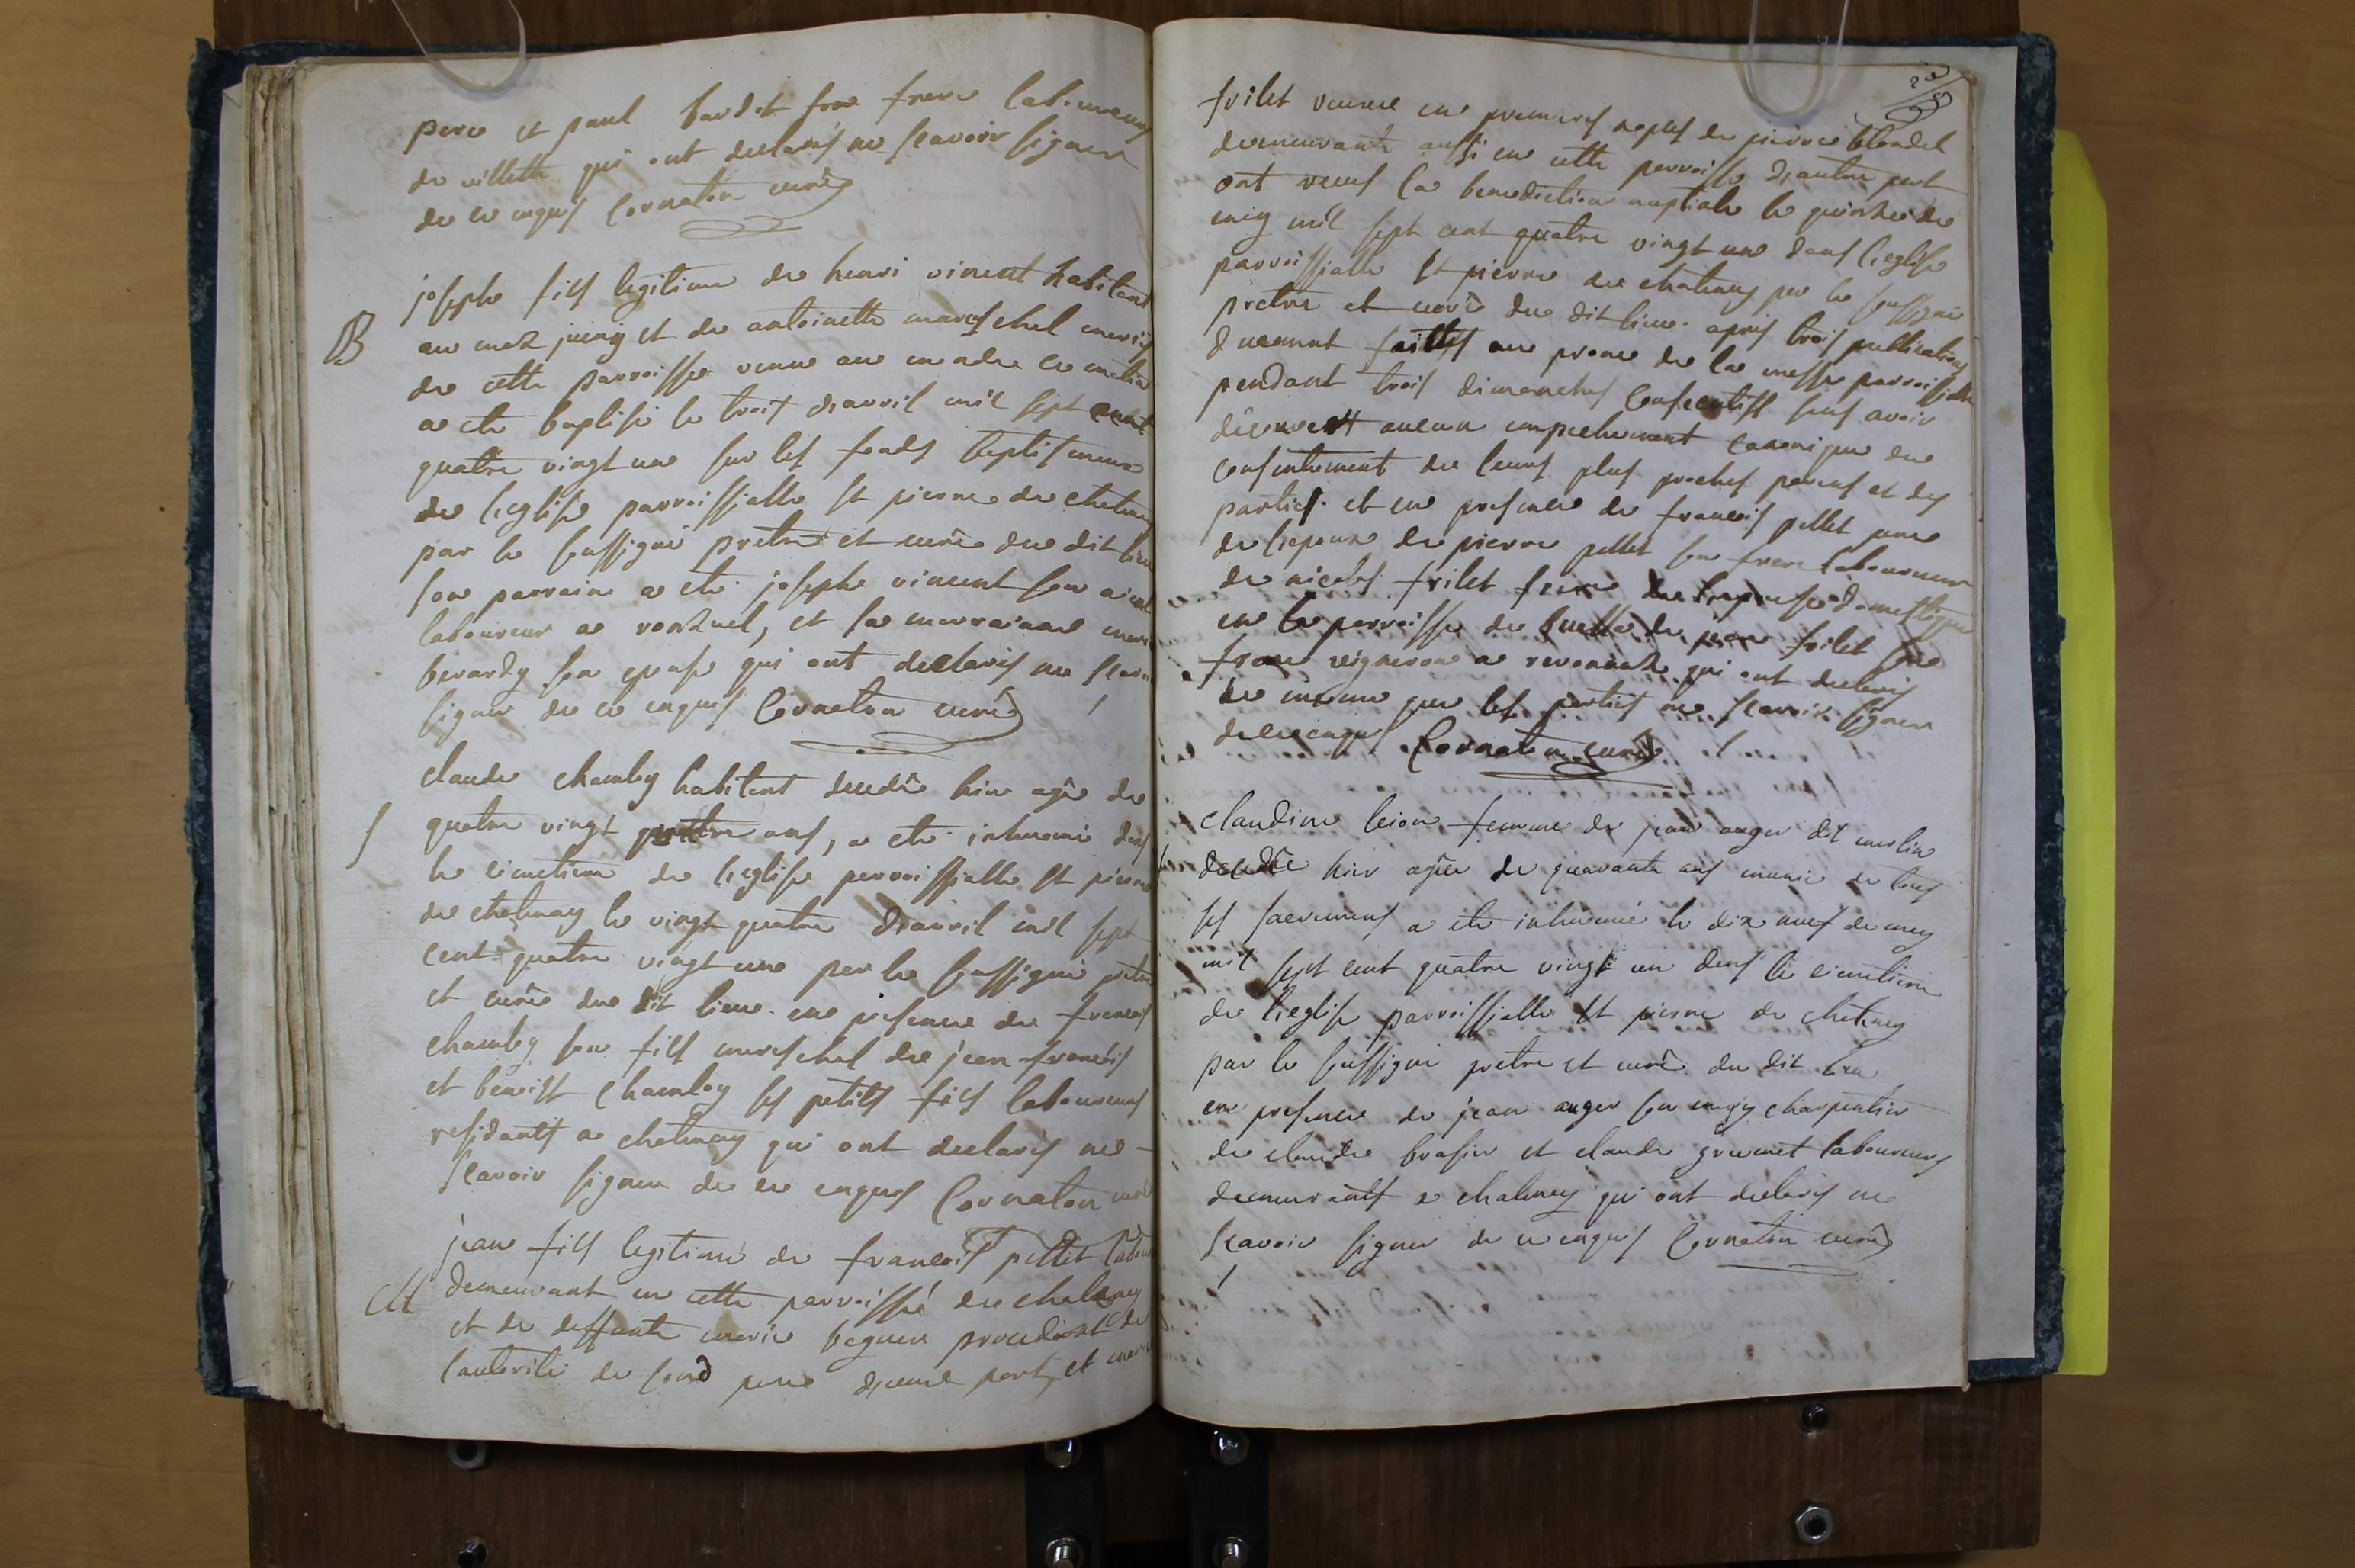 pere et paul son frere laboureurs
de villette qui ont declarés ne scavoir signer
de ce enquis Cornaton curé
B
josephe fils legitime de henri vincent habitant
au juing et de antoinette mareschel mariés
de cette parroisse venue au monde ce matin
a ete baptisé le trois d'avril mil sept cent
quatre vingt une sur les fonds baptismaux
de l'eglise parroissialle st pierre de
par le soussigné pretre et curé du dit lieu
son parrain a ete josephe vincent son aieul
laboureur a et sa marrainne
son epouse qui ont declarés ne scavoir
signer de ce enquis Cornaton curé
S
claude chambey habitant decedé hier agé de
quatre vingt quatre ans, a ete inhumé dans
le cimetiere de l'eglise parroissialle st pierre
de le vingt quatre d'avril mil sept
cent quatre vingt une par le soussigné pretre
et curé du dit lieu en presence de francois
chambey son fils mareschal de jean francois
et benoist chambey ses petits fils laboureurs
residants a qui ont declarés ne
scavoir signer de ce enquis Cornaton curé
M
jean fils legitime de francois pellet
demeurant en cette parroisse de
et de deffunte marie procedant de
l'autorité de sond pere d'une part, et
frilet veuve en premieres nopces de pierre blondel
demeurante aussi en cette parroisse d'autre part
ont receus la benediction nuptiale le quinze de
may mil sept cent quatre vingt une dans l'eglise
parroissialle st pierre de par le soussigné
pretre et curé du dit lieu apres trois publications
duement faittes au prone de la messe parroissialle
pendant trois dimanches consecutifs sans avoir
decouvert aucun empechement canonique du
consentement de leurs plus proches parens et des
parties et en presence de francois pellet pere
de l'epoux de pierre pellet son frere laboureur
de nicolas frilet frere de l'epouse domestique
en la parroisse de de jean frilet son
frere vigneron a revonnaz qui ont declarés
de meme que les parties ne scavoir signer
de ce enquis Cornaton curé
claudine femme de jean auger dit merlin
decedée hier agée de quarante ans munie de tous
ses sacremens a ete inhumé le dix neuf de may
mil sept cent quatre vingt un dans le cimetiere
de l'eglise parroissialle st pierre de
par le soussigné pretre et curé du dit lieu
en presence de jean auger son mary charpentier
de claude et claude laboureurs
demeurants a qui ont declarés ne
scavoir signer de ce enquis Cornaton curé